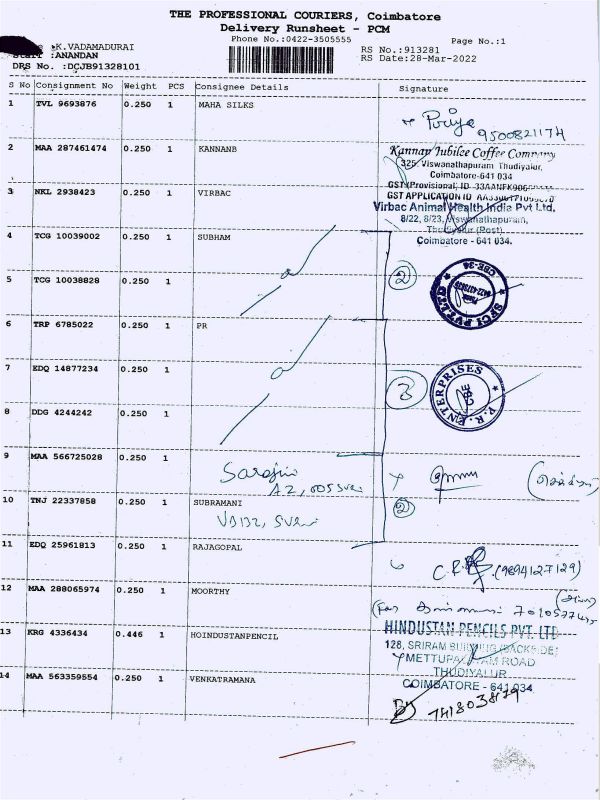 THE PROFESSIONAL COURIERS, Coimbatore
Delivery Runsheet - PCM
Phone No.:0422-3505555
Page No.:1
:K.VADAMADURAI
RS No.:913281
Staff :ANANDAN
RS Date:28-Mar-2022
DRS No. :DCJB91328101
S No Consignment No Weight PCS Consignee Details Signature
1 TVL 9693876 0.250 1 MAHA SILKS
Puriya
9500821174
2 MAA 287461474 0.250 1 KANNANB
Kannan Jubilee Coffee Company
325, Viswanathapuram Thudiyalur,
Coimbatore-641 034
GST(Provisional) ID
GST APPLICATION ID
3 NKL 2938423 0.250 1 VIRBAC
Virbac Animal Health India Pvt Ltd.
8/22, 8/23, Viswanathapuram,
Thudiyalur (Post)
Coimbatore - 641 034.
4 TCG 10039002 0.250 1 SUBHAM
2
5 TCG 10038828 0.250 1
CBE-34
6 TRP 6785022 0.250 1 PR
7 EDQ 14877234 0.250 1
3
P. R. ENTERPRISES
8 DDG 4244242 0.250 1
9 MAA 566725028 0.250 1
10 TNJ 22337858 0.250 1 SUBRAMANI
2
11 EDQ 25961813 0.250 1 RAJAGOPAL
(9894127129)
12 MAA 288065974 0.250 1 MOORTHY
13 KRG 4336434 0.446 1 HOINDUSTANPENCIL
HINDUSTAN PENCILS PVT. LTD
128, SRIRAM BUILDING (BACKSIDE)
METTUPALAYAM ROAD
THUDIYALUR
COIMBATORE - 641 034
14 MAA 563359554 0.250 1 VENKATRAMANA